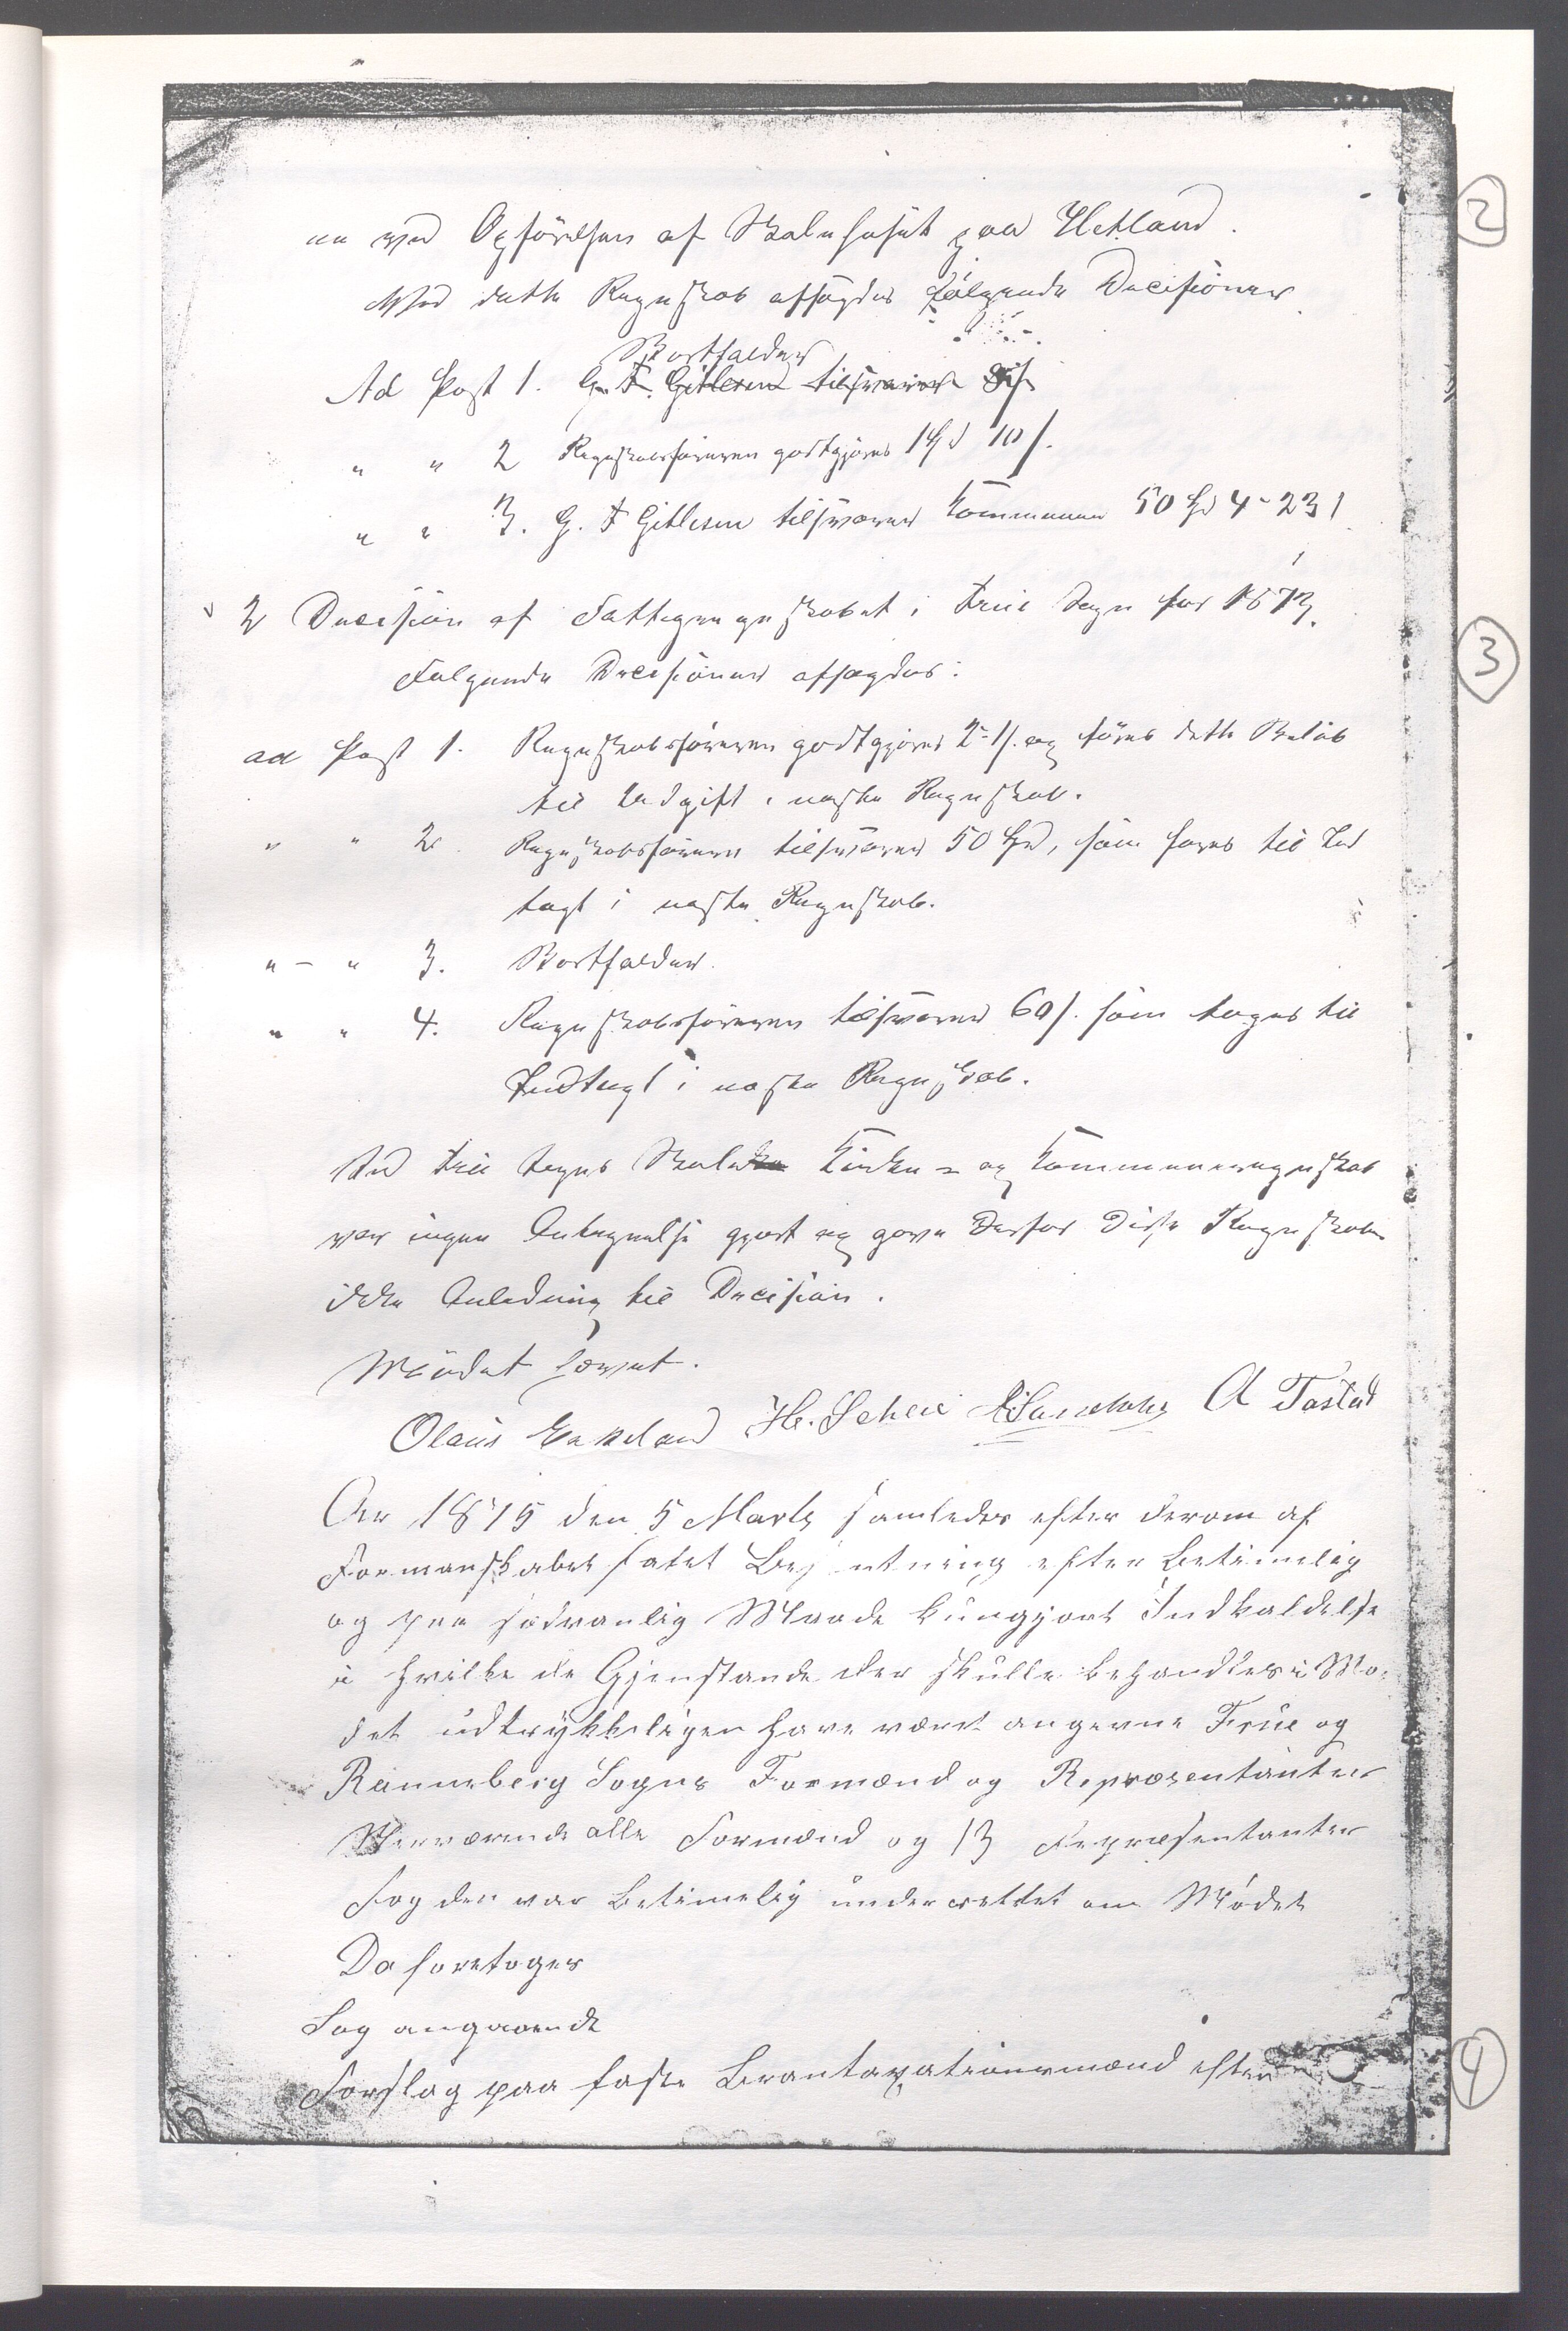 en ved Opförelsen af Skolehuset paa Hetland.
Ved dette Regnskab afsagdes følgende Decisioner
Bortfalder
Ad Post 1. G. T. Gitlesen tilsvarer
" " 2 Regnskabsföreren godtgjöres 1 Spd 10 s.
" " 3. G. T Gitlesen tilsvarer Kommunen 50 Spd 4 - 23 s
2 Decision af Fattigregnskabet i Frue Sogn for 1873.
Følgende Decisioner afsagdes:
ad Post 1. Regnskabsföreren godtgjöres 2 - 1 s. og föres dette Belöb
til Udgift i næste Regnskab.
" " 2. Regnskabsföreren tilsvarer 50 Spd, som föres til Ind
tægt i næste Regnskab.
" - " 3. Bortfalder.
" " 4. Regnskabsföreren tilsvarer 60 s. som tages til
Indtægt i næste Regnskab.
Ved Frue Sogns Skole Kirke- og Kommuneregnskab
var ingen Antegnelse gjort og gave derfor disse Regnskaber
ikke Anledning til Decision.
Mödet hævet.
Olaus Eskeland H. Scheie A Tastad
Aar 1875 den 5 Marts samledes efter derom af
Formanskabet fatet Beslutning efter betimelig
og paa sedvanlig Maade kungjort Indkaldelse
i hvilke de Gjenstande der skulle behandles i Mö-
det udtrykkeligen have været angevne Frue og
Ranneberg Sogns Formænd og Repræsentanter
Nerværende alle Formænd og 13 Repræsentanter
Fogden var betimelig underrettet om Mödet
Da foretoges
Sag angaaende
Forslag paa faste Brantaxationsmænd efter
2
3
4